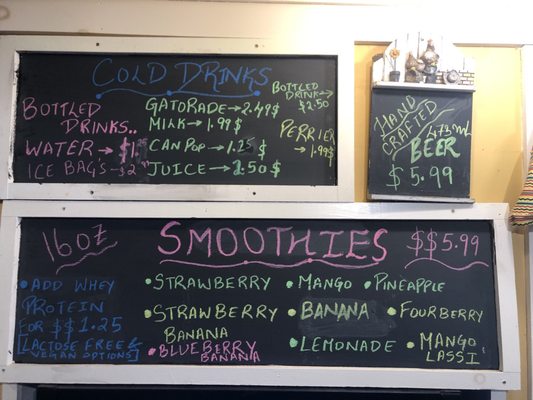 COLD DRINKS
BOTTLED
DRINKS..
WATER → $1.25
ICE BAG'S → $2
GATORADE → 2.49 $
MILK → 1.99 $
CAN POP → 1.25 $
JUICE → 2.50 $
BOTTLED
DRINK →
$2.50
PERRIER
→ 1.99$
HAND
CRAFTED
473mL
BEER
$5.99
16 oz
SMOOTHIES
$$5.99
• ADD WHEY
PROTEIN
FOR $$1.25
[LACTOSE FREE &
VEGAN OPTIONS]
• STRAWBERRY • MANGO • PINEAPPLE
• STRAWBERRY • BANANA • FOURBERRY
BANANA
• BLUEBERRY • LEMONADE • MANGO
BANANA LASSI